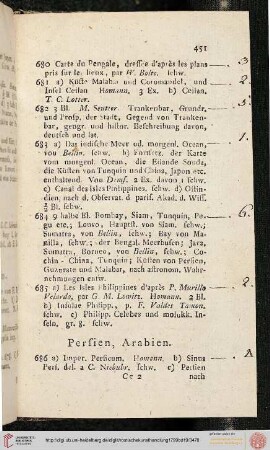 451
680 Carte du Bengale, dressée d'après les plans
pris sur le lieux, par W. Bolts. schw.
681 a) Küste Malabar und Coromandel, und
Insel Ceilan Homann, 3 Ex. b) Ceilan,
T. C. Lotter.
682 3 Bl. M. Seutter Trankenbar, Grundr.
und Prosp. der Stadt, Gegend von Tranken-
bar, geogr. und histor. Beschreibung davon,
deutsch und lat.
683 a) Das indische Meer od. morgenl. Ocean,
von Bellin, schw. b) Fortsetz. der Karte
vom morgenl. Ocean, die Eilande Sonda,
die Küsten von Tunquin und China, Japon etc.
enthaltend. Von Demf. 2 Ex. davon 1 schw.
c) Canal des Isles Philippines, schw. d) Ostin-
dien, nach d. Observat. d. paris. Akad. d. Wiss.
Bl. schw.
684 9 halbe Bl. Bombay, Siam, Tunquin, Pe-
gu etc.; Louvo, Hauptst. von Siam, schw.;
Sumatra, von Bellin, schw.; Bay von Ma-
nilla, schw.; der Bengal. Meerbusen; Java,
Sumatra, Borneo, von Bellin, schw.; Co-
chin-China, Tunquin; Küsten von Persien,
Guzerate und Malabar, nach astronom. Wahr-
nehmungen entw.
685 a) Les Isles Philippines d'après P. Murillo
Velarde, par G. M. Lowitz. Homann. 2 Bl.
b) Insulae Philipp., p. F. Valdes Tamon,
schw. c) Philipp. Celebes und molukk. In-
seln, gr. 8. schw.
Persien, Arabien.
686 a) Imper. Persicum, Homann. b) Sinus
Persi. del. a C. Niebuhr. schw. c) Persien
Cc 2 nach
3
5
1
6
2
A